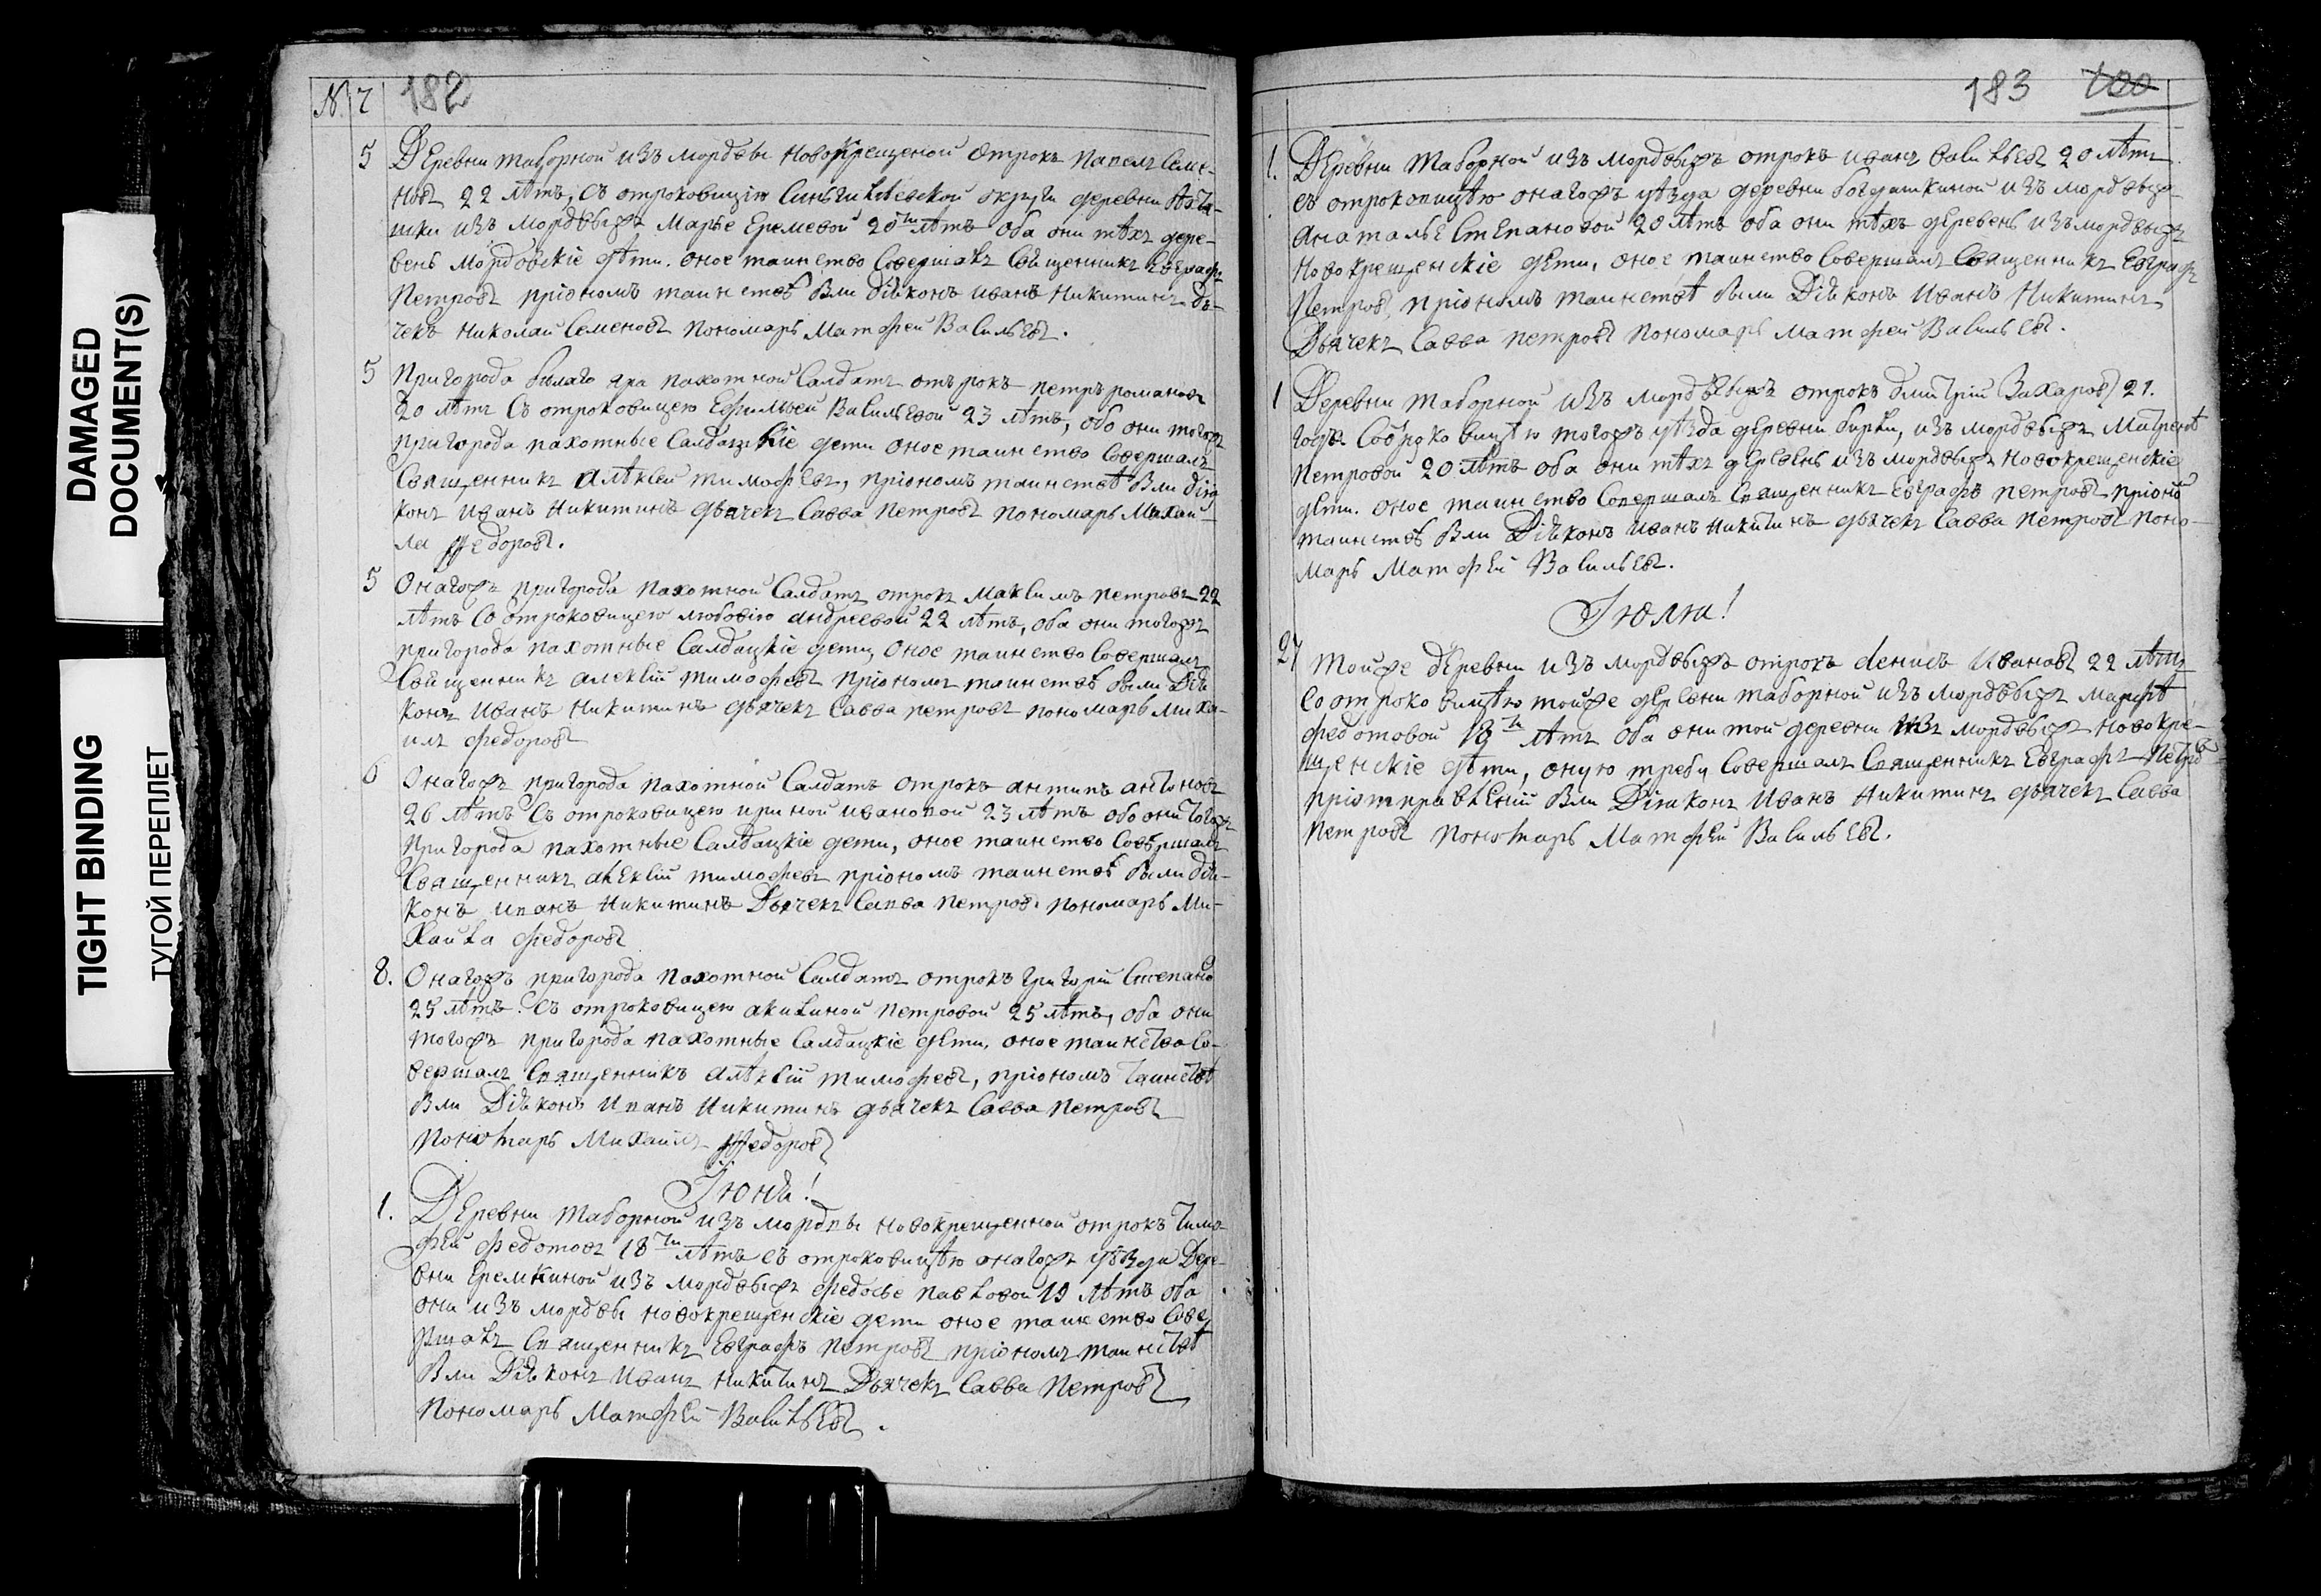 DAMAGED
DOCUMENT(S)
TIGHT BINDING
ТУГОЙ ПЕРЕПЛЕТ
№ 7 182
5 Деревни таборной изъ мордвы новокрещеной отрокъ павелъ Семе-
новъ 22 лѣтъ, съ отроковицѣю Синьгилѣевской округи деревни
шки изъ мордвыжъ Марье Еремевой 20ти лѣтъ оба они тѣхъ дере-
вень мордовскіе дѣти. оное таинство Совершалъ Священникъ Евграфъ
Петровъ пріономъ таинствѣ были діяконъ иванъ никитинъ дь-
чекъ николай Семеновъ пономарь Матфей Василъевъ.
5 Пригорода билаго яра пахотной Салдатъ отърокъ петръ романовъ
20 лѣтъ Съ отроковицею Василъевой 23 лѣтъ, обо они тогожъ
пригорода пахотные Салдацкіе дети оное таинство Совершалъ
Священникъ Алѣксей тимофѣевъ, пріономъ таинствѣ были дія
конъ иванъ никитинъ дьячекъ Савва петровъ пономарь Михаи-
ла федоровъ.
5 Онагожъ пригорода пахотной Салдатъ отрокъ максимъ петровъ 22
лѣтъ Со отроковицею любовію андреевой 22 лѣтъ, оба они тогожъ
пригорода пахотные Салдацкіе дети, Оное таинство Совершалъ
Священникъ алексій тимофевъ пріономъ таинствѣ были Дія
конъ иванъ никитинъ дьячекъ Савва петровъ пономарь Миха-
илъ федоровъ
6 Онагожъ пригорода пахотной Салдатъ отрокъ антипъ антоновъ
26 лѣтъ Съ отроковицею ириной ивановой 23 лѣтъ обо они тогожъ
пригорода пахотные Салдацкіе дети, оное таинство Совершалъ
Священникъ алексій тимофевъ пріономъ таинствѣ были дія-
конъ иванъ никитинъ Дьячекъ Савва петровъ пономарь Ми-
хаила федоровъ
8. Онагожъ пригорода пахотной Салдатъ отрокъ григорій Степано
25 лѣтъ. Съ отроковицею акилиной петровой 25 лѣтъ, оба они
тогожъ пригорода пахотные Салдацкіе дети, оное таинство Со-
вершалъ Священникъ алѣксій тимофевъ, пріономъ таинствѣ
были Діяконъ иванъ никитинъ дьячекъ Савва петровъ
пономарь Михаилъ федоровъ
Іюня!
1. Деревни таборной изъ мордвы новокрещенной отрокъ тимо-
фей федотовъ 18ти лѣтъ съ отроковицѣю онагожъ уѣзда Дере-
вни Еремкиной изъ мордвыжъ федосье павловой 19 лѣтъ оба
они изъ мордвы новокрещенскіе дети оное таинство Сове
ршалъ Священникъ Евграфъ петровъ пріономъ таинствѣ
были Діяконъ иванъ никитинъ Дьячекъ Савва Петровъ
пономарь Матфей Василъевъ.
183 100
1. Деревни таборной изъ мордвыжъ отрокъ иванъ василъевъ 20 лѣтъ
съ отроковицѣю онагожъ уѣзда деревни богдашкиной изъ мордвыж
анаталье Степановой 20 лѣтъ оба они тѣхъ деревень изъ мордвыжъ
новокрещенскіе дети, оное таинство Совершалъ Священникъ Евграфъ
Петровъ, пріономъ таинствѣ были Діяконъ иванъ никитинъ
Дьячекъ Савва петровъ пономарь матфей Василъевъ.
1 Деревни таборной изъ мордвыжъ отрокъ дмитрій Захаровъ 21.
годъ Соброковицѣю тогожъ уѣзда деревни бирли, изъ мордвыжъ Матренѣ
петровой 20 лѣтъ оба они тѣхъ деревень изъ мордвыжъ новокрещенскіе
дети. оное таинство Совершалъ Священникъ Евграфъ петровъ пріоно
таинствѣ были Діяконъ иванъ никитинъ дьячекъ Савва петровъ поно-
марь Матфей Василъевъ.
Іюля!
27 тойже деревни изъ мордвыжъ отрокъ денисъ ивановъ 22 лѣтъ
Со отроковицѣю тойже деревни таборной изъ мордвыжъ марфѣ
федотовой 19ти лѣтъ оба они той деревни изъ мордвыжъ новокре-
щенскіе дѣти, оную требу Совершалъ Священникъ Евграфъ петровъ
пріотправленіи были Діяконъ иванъ никитинъ дьячекъ Савва
петровъ пономарь Матфей Василъевъ.